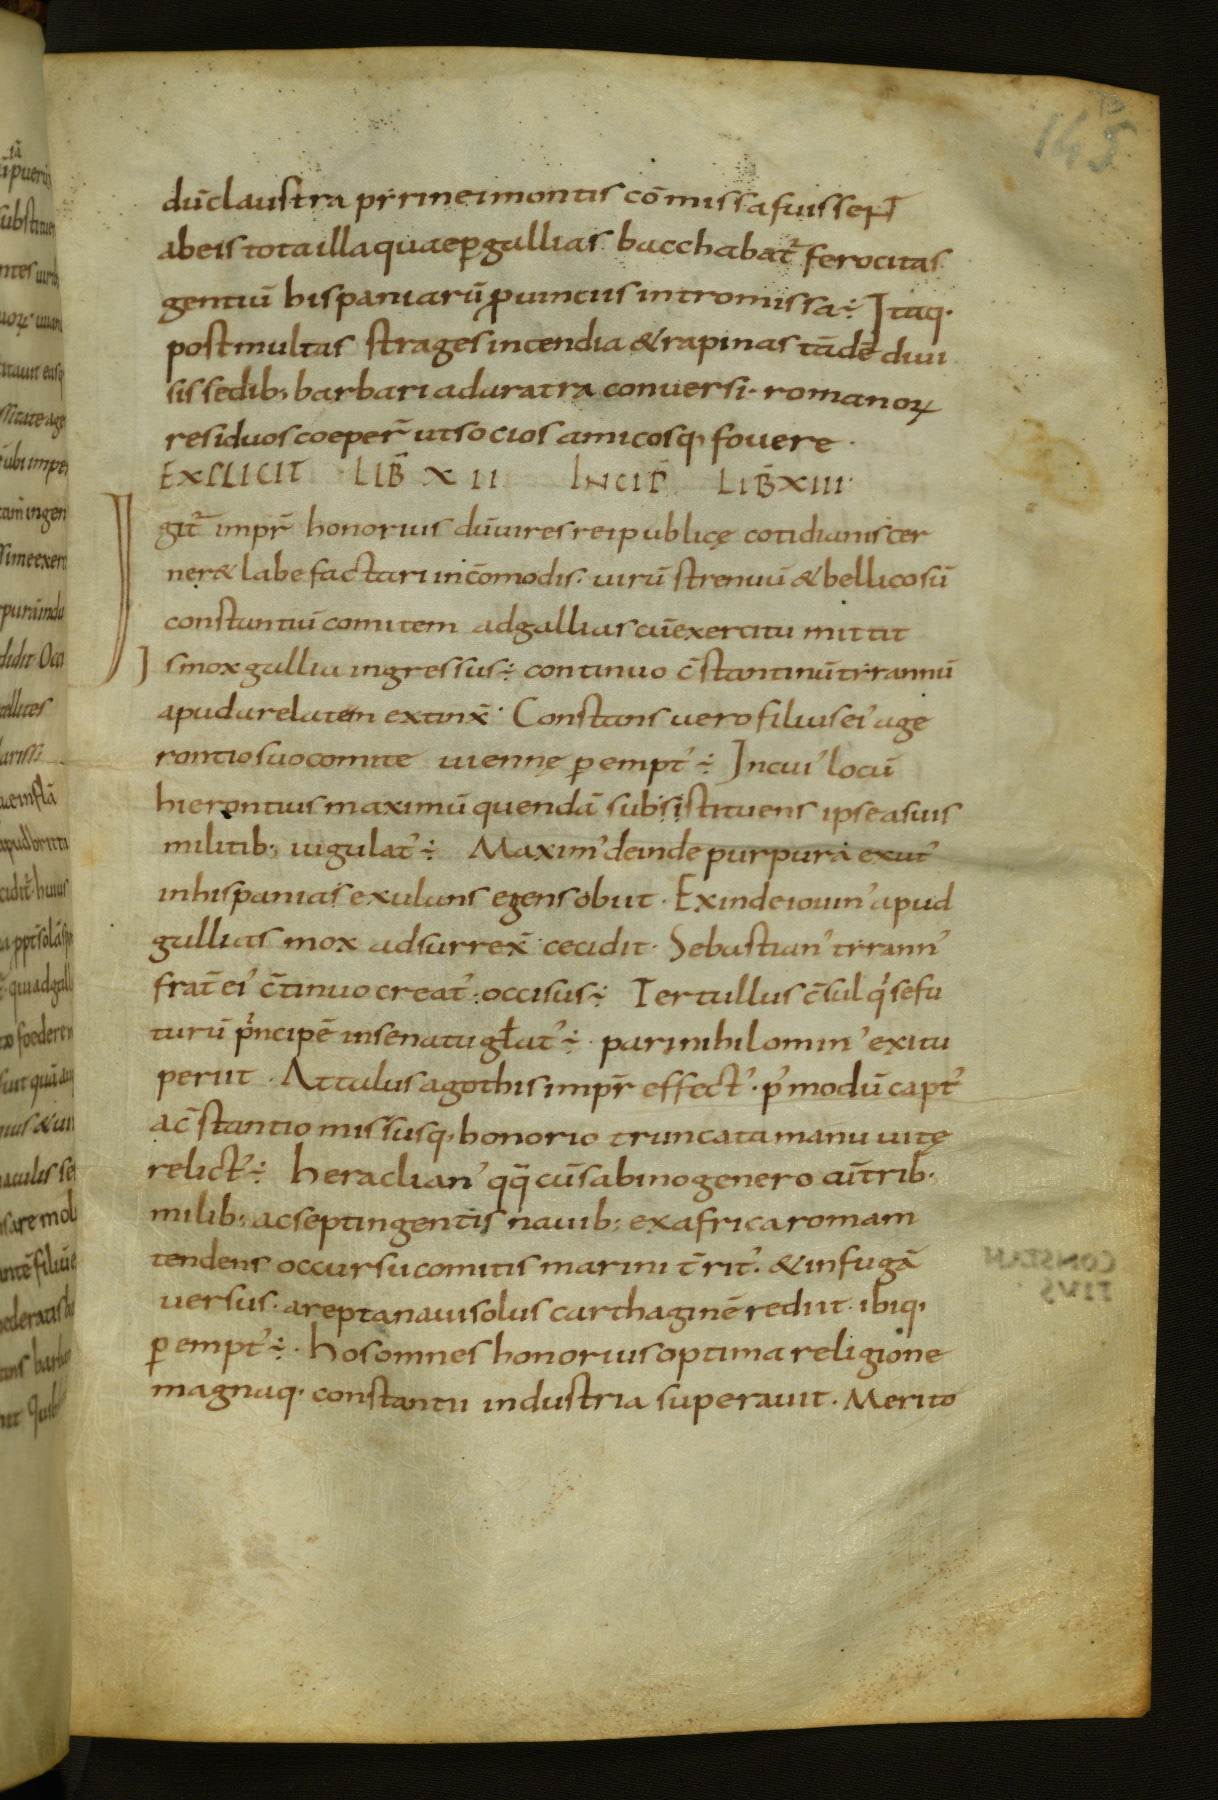 145
dūclaustra pẏrineimontis cōmissa fuissent
abeis tota illa quaeꝑgallias bacchabat᷒ ferocitas
gentiū hispaniarū ꝓuinciis intromissa⁊ Itaq·
post multas strages incendia & rapinas tādē diui
sis sedib; barbari ad aratra conuersi· romanoꝝ
residuos coeper̄ ut socios amicosq; fouere·
EXPLICIT LIB̄ XII INCIP̄ LIB̄ XIII·
Igit᷒ impr̄ honorius dū uires rei publicę cotidianis cer
ner& labefactari incōmodis· uirū strenuū & bellicosū
constantiū comitem ad gallias cū exercitu mittit
Is mox gallia ingressus⁊ continuo c̄stantinū tẏrannū
apud arelatem extinx̄· Constans uero filius ei᾽ a ge
rontio suo comite uiennę ꝑempt᾽⁊ In cui᾽ locū
hierontius maximū quendā subsistituens ipse a suis
militib; iugulat᾽⁊ Maxim᾽ deinde purpura exut᾽
in hispanias exulans egens obiit· Exinde iouin᾽ apud
gallias mox adsurrex̄ cecidit· Sebastian᾽ tẏrann᾽
frat̄ ei᾽ c̄tinuo creat᾽ occisus⁊ Tertullus c̄sul q᾽ se fu
turū p᾽ncipē in senatu głat᾽⁊ pari nihilomin᾽ exitu
periit· Attalus a gothis impr̄ effect᾽· p᾽modū capt᾽
a c̄stantio missusq; honorio truncata manu uitę
relict᾽⁊ heraclian᾽ qq̄ cū sabino genero cū trib·
milib; ac septingentis nauib; ex africa romam
tendens occursu comitis marini t̄rit᾽· & in fugā
uersus· arepta naui solus carthaginē rediit· ibiq;
ꝑempt᾽⁊· hos omnes honorius optima religione
magnaq· constantii industria superauit· Merito
CONSTAN
TIVS